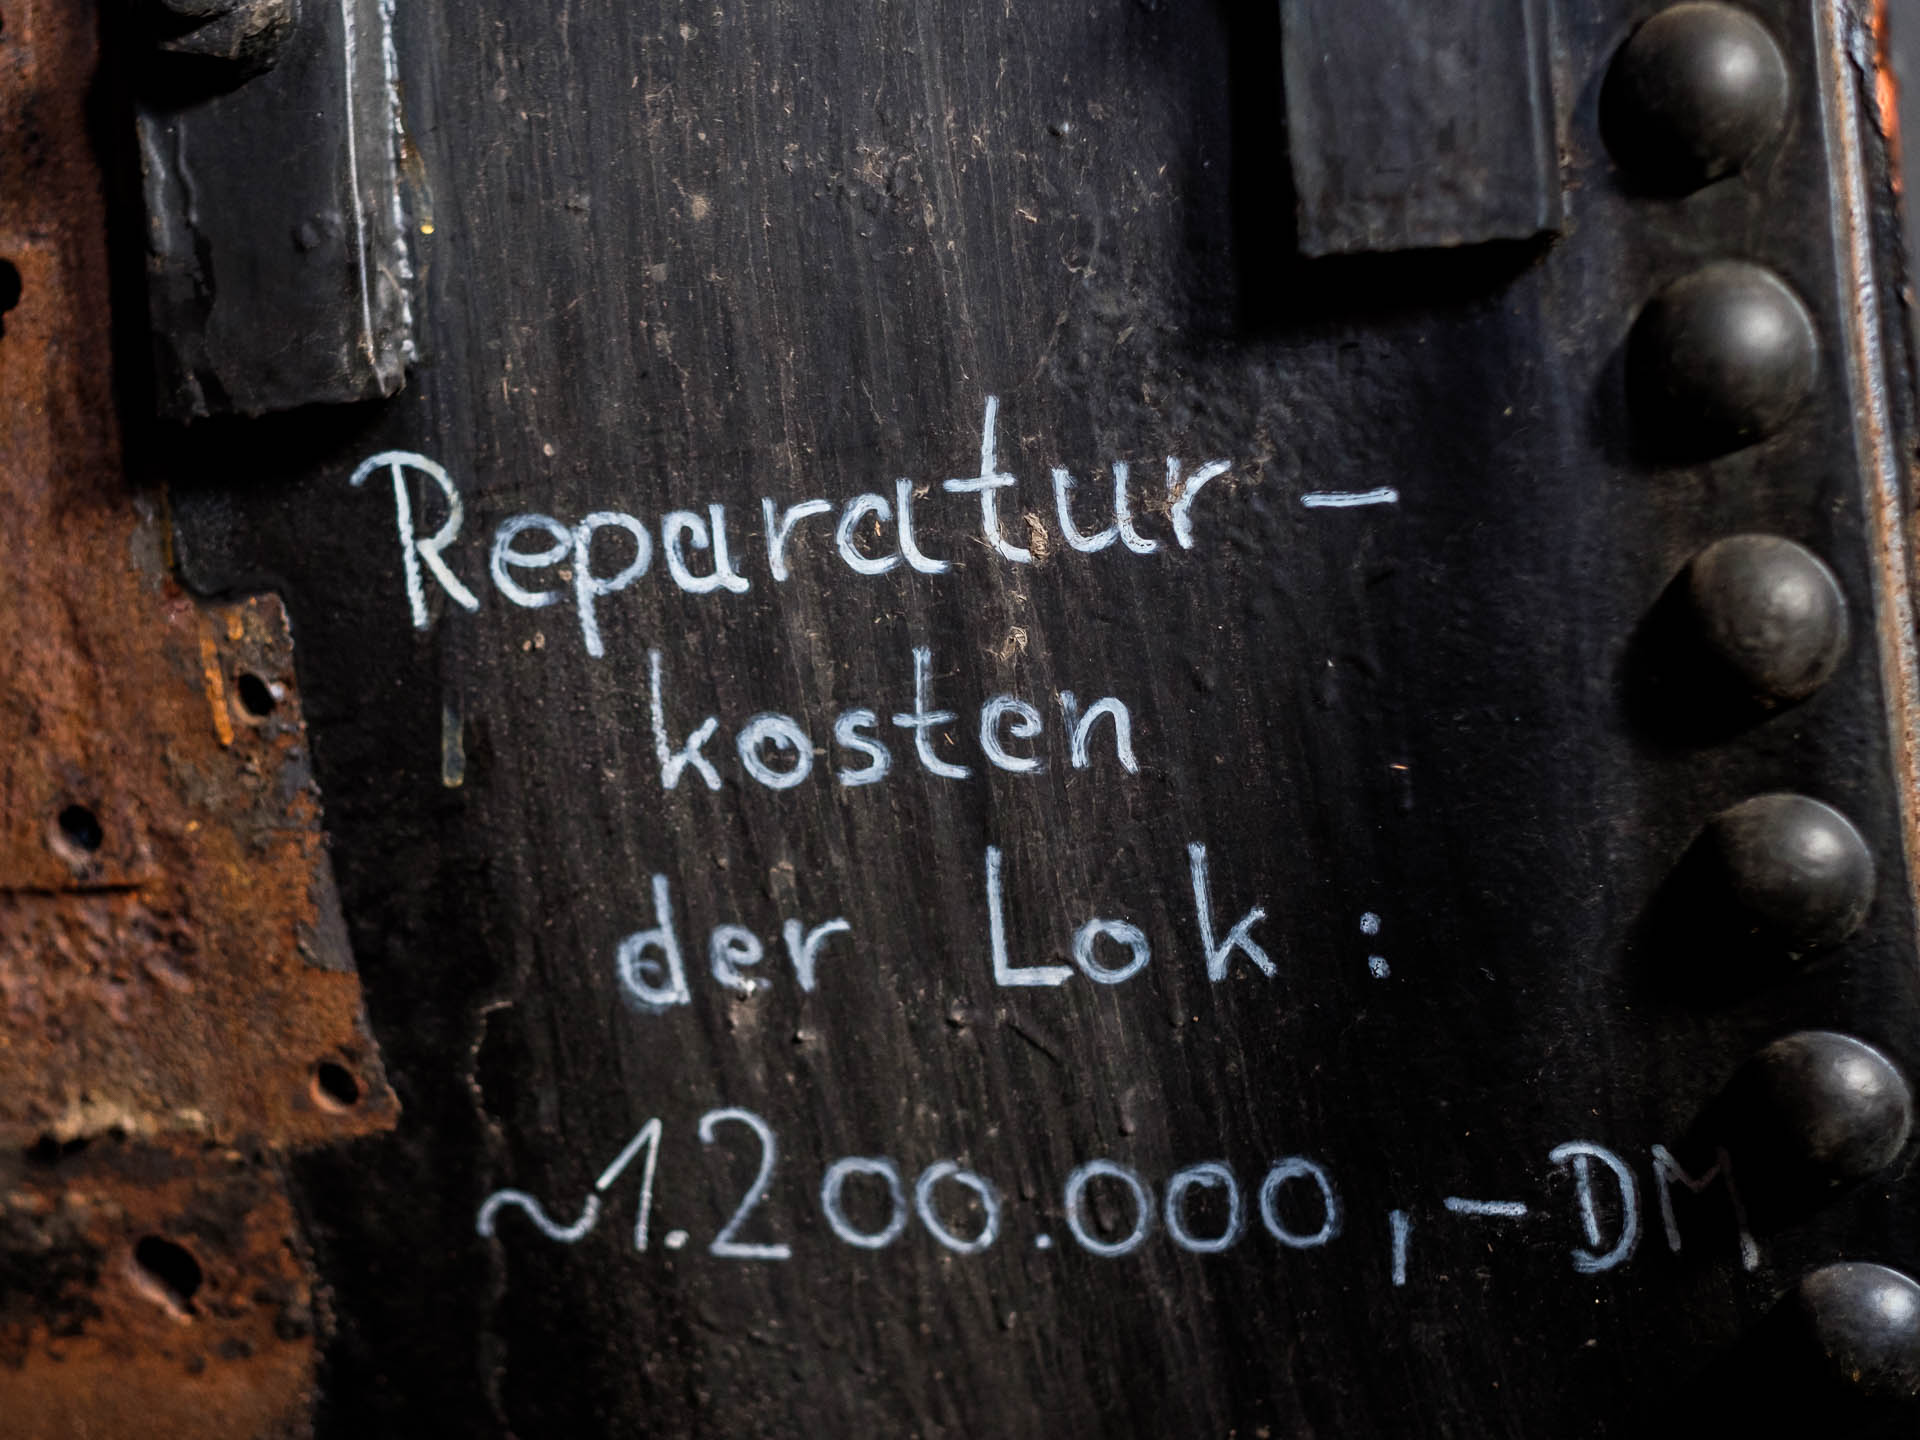 Reparatur-
kosten
der Lok:
~1.200.000,- DM